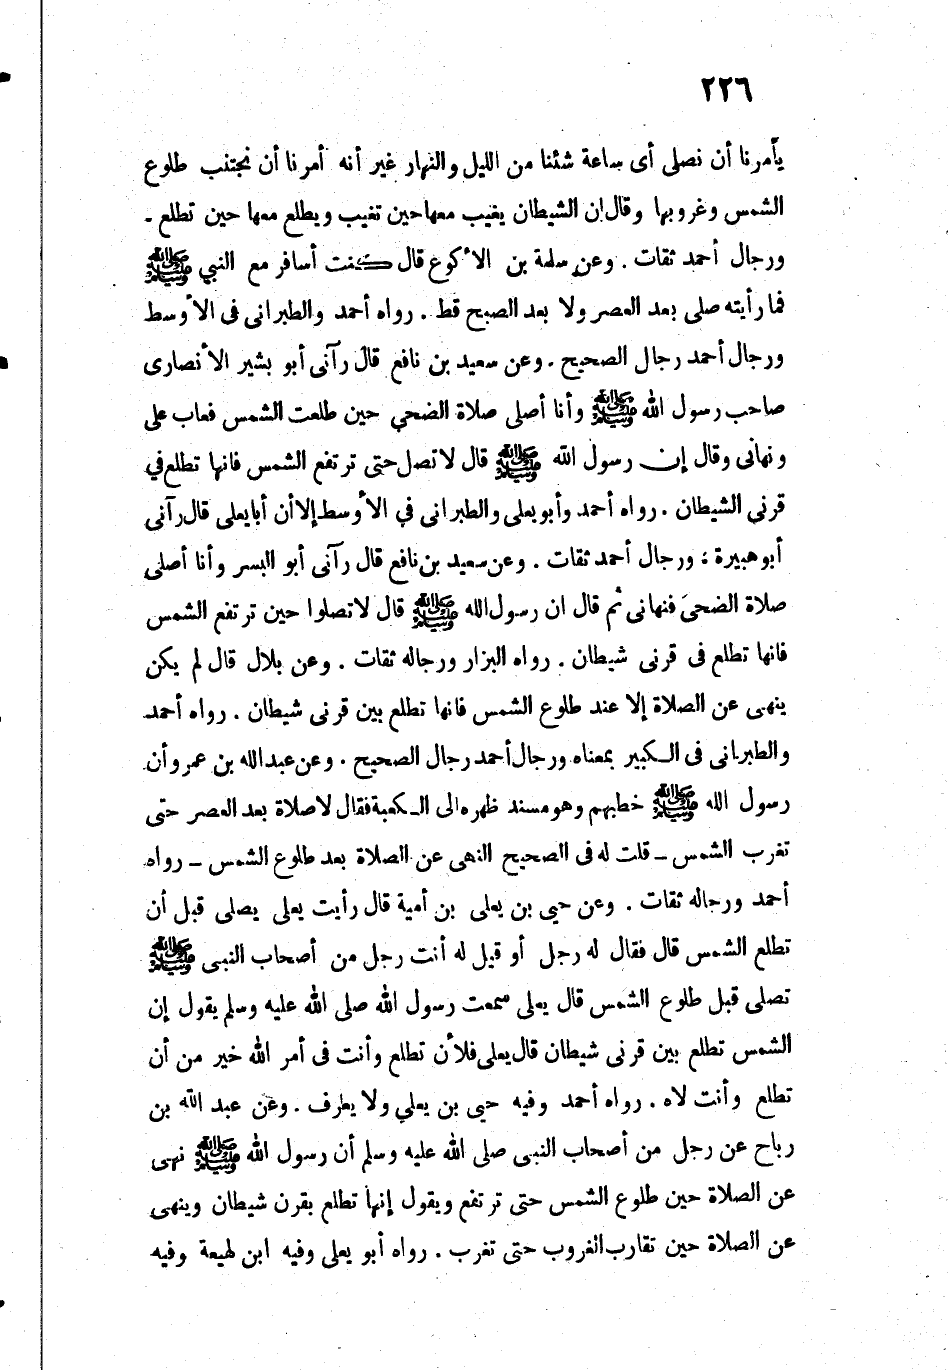 ٢٢٦
يأمرنا أن نصلى أى ساعة شئنا من الليل والنهار غير أنه أمرنا أن نجتنب طلوع
الشمس وغروبها وقال إن الشيطان يغيب معها حين تغيب ويطلع معها حين تطلع -
ورجال أحمد ثقات . وعن سلمة بن الأكوع قال كنت أسافر مع النبي ﷺ
فما رأيته صلى بعد العصر ولا بعد الصبح قط . رواه أحمد والطبرانى فى الأوسط
ورجال أحمد رجال الصحيح . وعن سعيد بن نافع قال رآنى أبو بشير الأنصارى
صاحب رسول الله ﷺ وأنا أصلى صلاة الضحى حين طلعت الشمس فعاب على
ونهانى وقال إن رسول الله ﷺ قال لا تصل حتى ترتفع الشمس فانها تطلع في
قرني الشيطان . رواه أحمد وأبو يعلى والطبرانى في الأوسط إلا أن أبا يعلى قال رآنى
أبو هبيرة ؛ ورجال أحمد ثقات . وعن سعيد بن نافع قال رآنى أبو اليسر وأنا أصلى
صلاة الضحى فنهانى ثم قال ان رسول الله ﷺ قال لا تصلوا حين ترتفع الشمس
فانها تطلع فى قرنى شيطان . رواه البزار ورجاله ثقات . وعن بلال قال لم يكن
ينهى عن الصلاة إلا عند طلوع الشمس فانها تطلع بين قرنى شيطان . رواه أحمد
والطبرانى فى الكبير بمعناه ورجال أحمد رجال الصحيح . وعن عبد الله بن عمرو أن
رسول الله ﷺ خطبهم وهو مسند ظهره الى الكعبة فقال لا صلاة بعد العصر حتى
تغرب الشمس - قلت له فى الصحيح النهى عن الصلاة بعد طلوع الشمس - رواه
أحمد ورجاله ثقات . وعن حيى بن يعلى بن أمية قال رأيت يعلى يصلى قبل أن
تطلع الشمس قال فقال له رجل أو قيل له أنت رجل من أصحاب النبى ﷺ
تصلى قبل طلوع الشمس قال يعلى سمعت رسول الله صلى الله عليه وسلم يقول إن
الشمس تطلع بين قرنى شيطان قال يعلى فلأن تطلع وأنت فى أمر الله خير من أن
تطلع وأنت لاه . رواه أحمد وفيه حيى بن يعلي ولا يعرف . وعن عبد الله بن
رباح عن رجل من أصحاب النبى صلى الله عليه وسلم أن رسول الله ﷺ نهى
عن الصلاة حين طلوع الشمس حتى ترتفع ويقول إنها تطلع بقرن شيطان وينهى
عن الصلاة حين تقارب الغروب حتى تغرب . رواه أبو يعلى وفيه ابن لهيعة وفيه